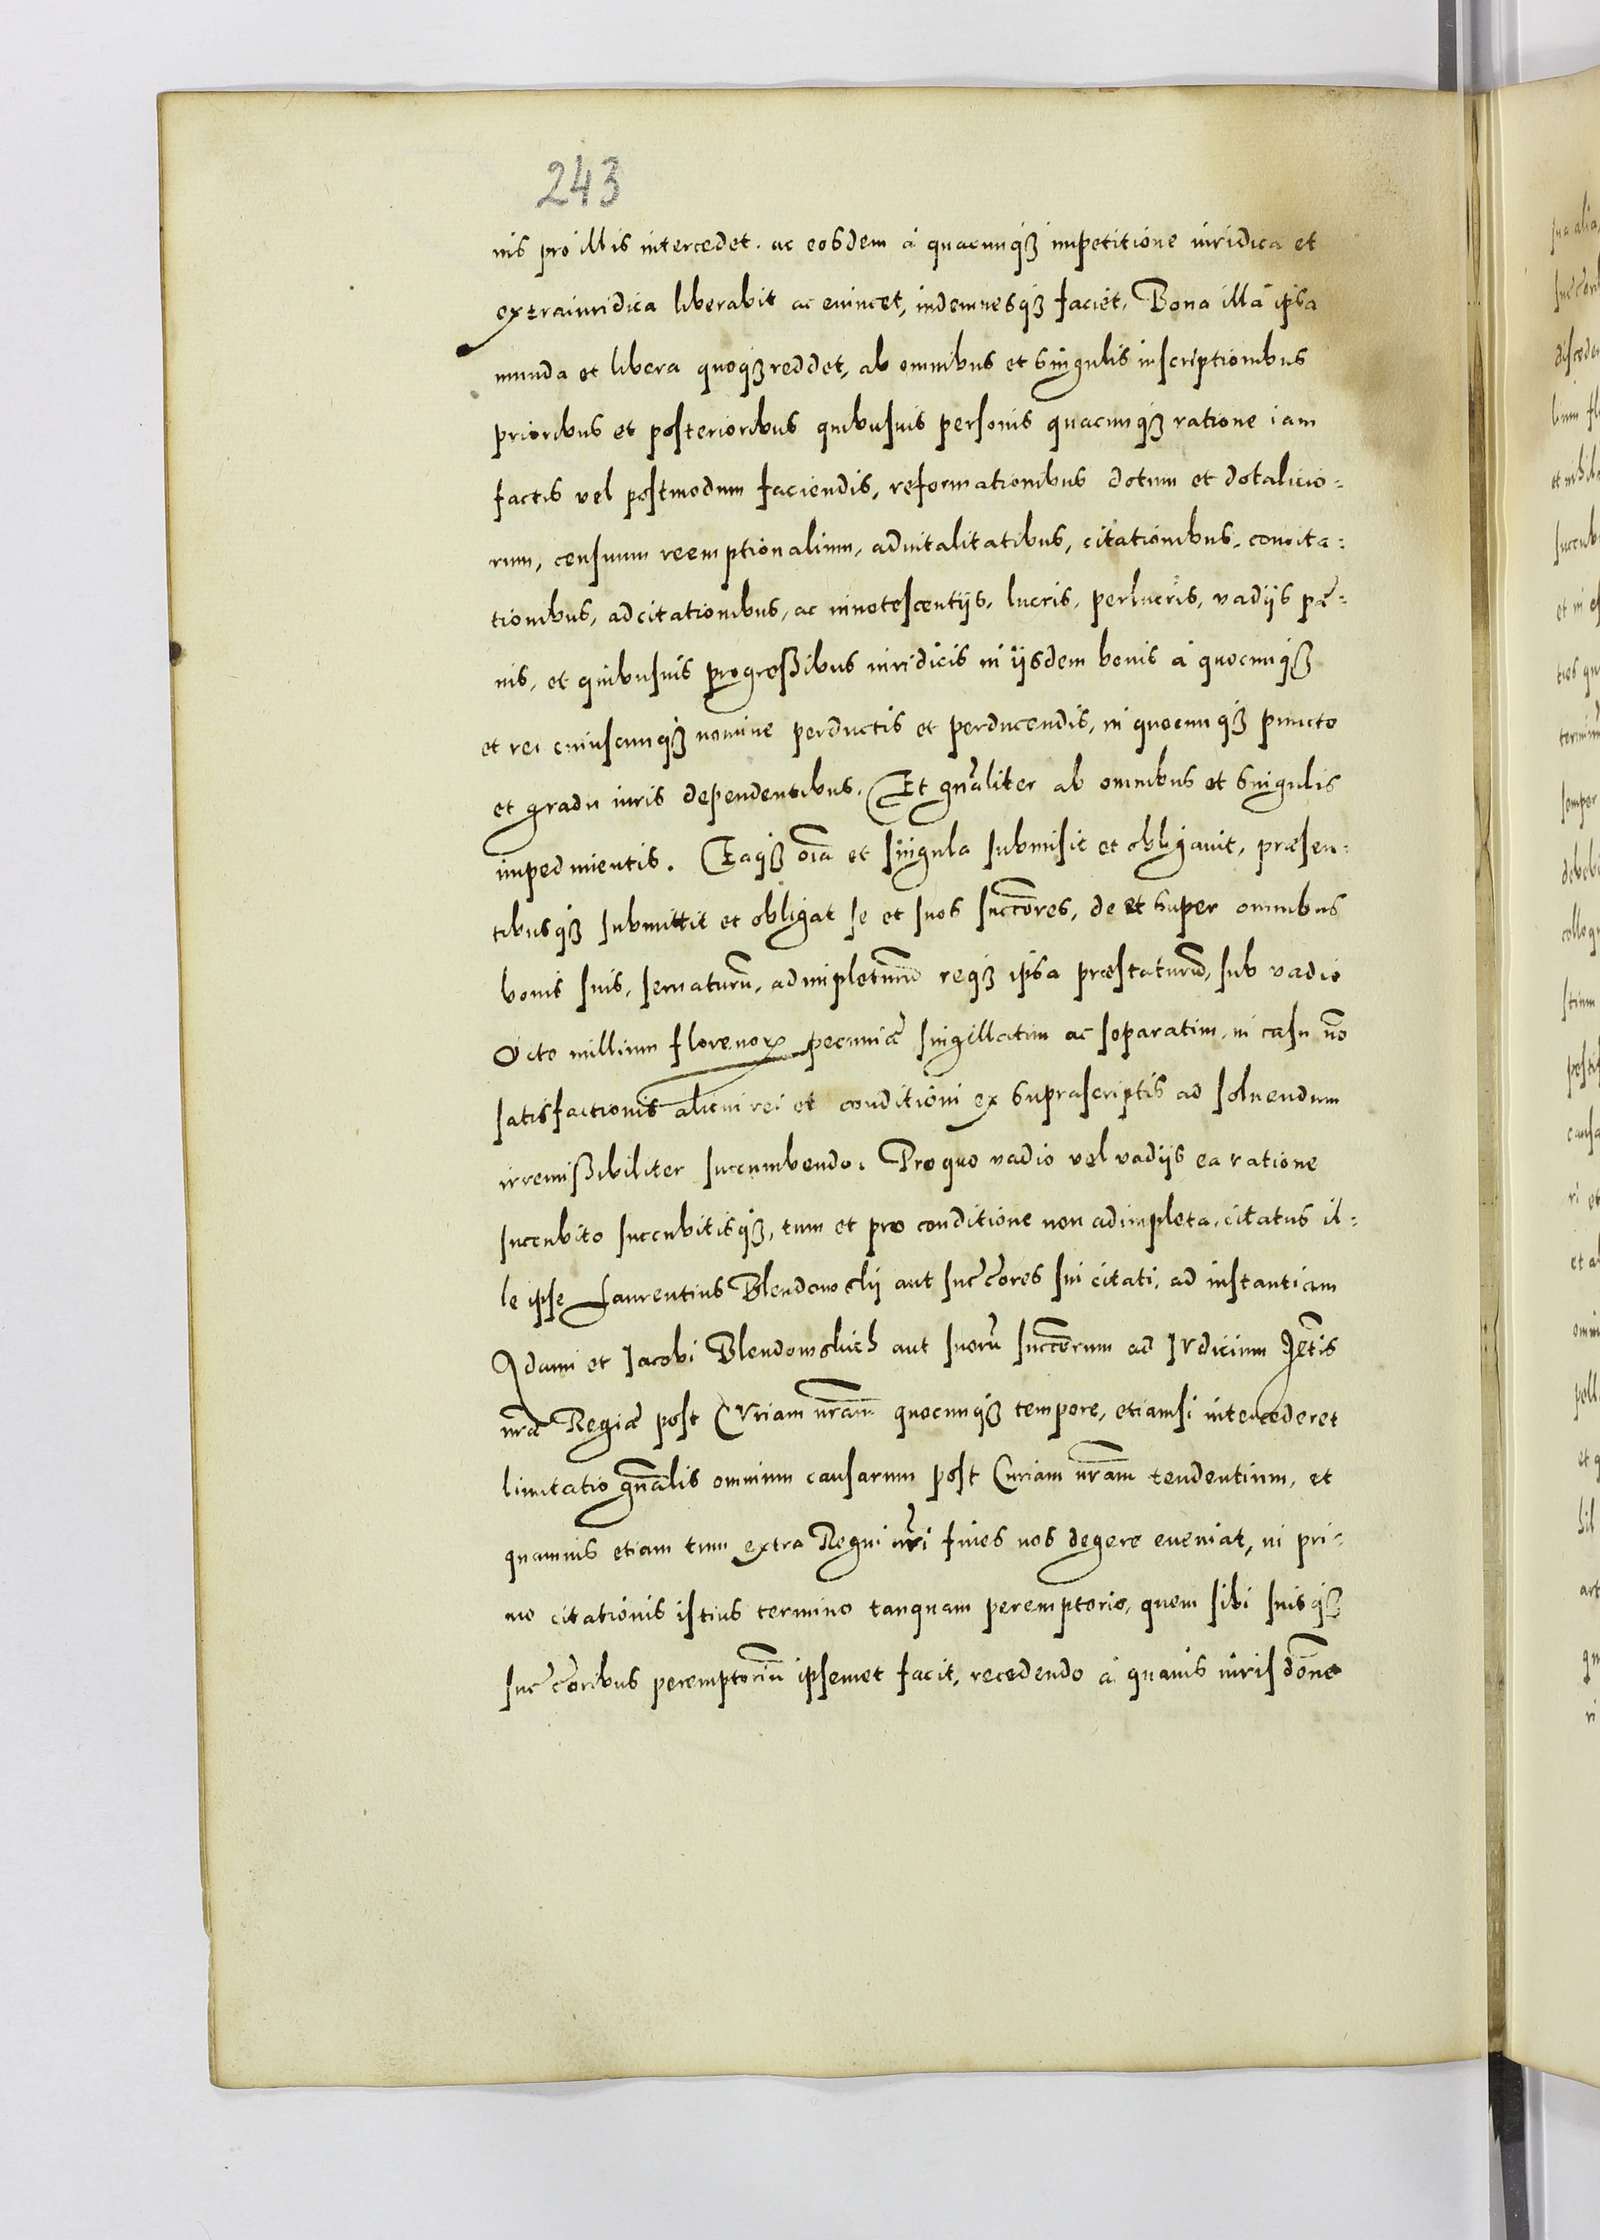 243
nis pro illis intercedet. ac eosdem à quacunqȝ impetitione iuridica et
extraiuridica liberabit ac euincet, indemnesqȝ faciet. Bona illa ipsa
munda et libera quoqȝ reddet, ab omnibus et singulis inscriptionibus
prioribus et posterioribus quibusuis personis quacunqȝ ratione iam
factis vel postmodum faciendis, reformationibus dotum et dotalicio-
rum, censuum reemptionalium, aduitalitatibus, citationibus, concita-
tionibus, adcitationibus, ac innotescentijs, lucris, perlucris, vadijs pę-
nis, et quibusuis progreßibus iuridicis in ijsdem bonis à quocunqȝ
et rei cuiuscunqȝ nomine perductis et perducendis, in quocunqȝ puncto
et gradu iuris dependentibus. Et gñaliter ab omnibus et singulis
impedimentis. Eaqȝ oĩa et singula submisit et obligauit, præsen-
tibusqȝ submittit et obligat se et suos succores, de et super omnibus
bonis suis, seruaturũ, adimpleturũ reqȝ ipsa præstaturũ, sub vadio
Octo millium florenorꝝ pecuniæ singillatim ac separatim, in casu nõ
satisfactionis alicui rei et conditioni ex suprascriptis ad soluendum
irremißibiliter succumbendo. Pro quo vadio vel vadijs ea ratione
succubito succubitisqȝ, tum et pro conditione non adimpleta, citatus il-
le ipse Laurentius Blendowskij aut succores sui citati, ad instantiam
Adami et Jacobi Blendowskich aut suorũ succorum ad Judicium Mẽtis
nrã Regiæ post Curiam nrãm quocunqȝ tempore, etiamsi intercederet
limitatio gñalis omnium causarum post Curiam nrãm tendentium, et
quamuis etiam tum extra Regni nrĩ fines nos degere eueniat, in pri-
mo citationis istius termino tanquam peremptorio, quem sibi suisqȝ
succoribus peremptoriũ ipsemet facit, recedendo à quauis iurisdõne